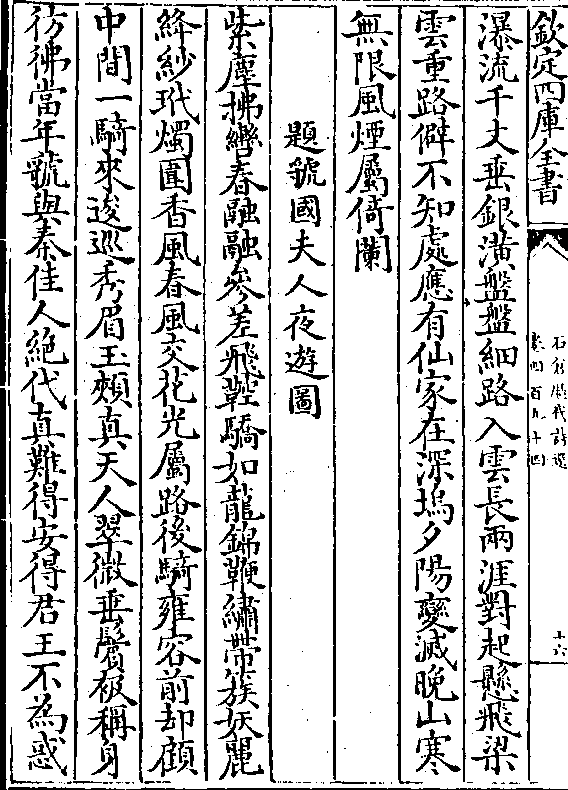 欽定四庫全書
石倉歷代詩選
卷四百九十四
十六
瀑流千丈垂銀潢盤盤細路入雲長兩涯對起懸飛梁
雲重路僻不知處應有仙家在深塢夕陽變滅晚山寒
無限風煙屬倚闌
題虢國夫人夜遊圖
紫塵拂轡春融融參差飛鞚驕如龍錦鞭繡帶簇妖麗
絳紗玳燭圍香風春風交花光屬路後騎雍容前却顧
中間一騎來逡巡秀眉玉頰真天人翠微垂鬢衱稱身
彷彿當年虢與秦佳人絕代真難得安得君王不為惑